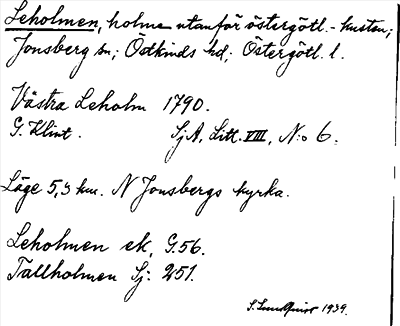 Leholmen, holme utanför östergötl.-kusten;
Jonsberg sn; Östkinds hd; Östergötl. l.
Västra Leholm 1790.
G. Klint. SjA, Litt. VIII, N:o 6.
Läge 5,3 km. N Jonsbergs kyrka.
Leholmen ek. G.56.
Tallholmen Sj: 251.
S. Lundquist 1939.